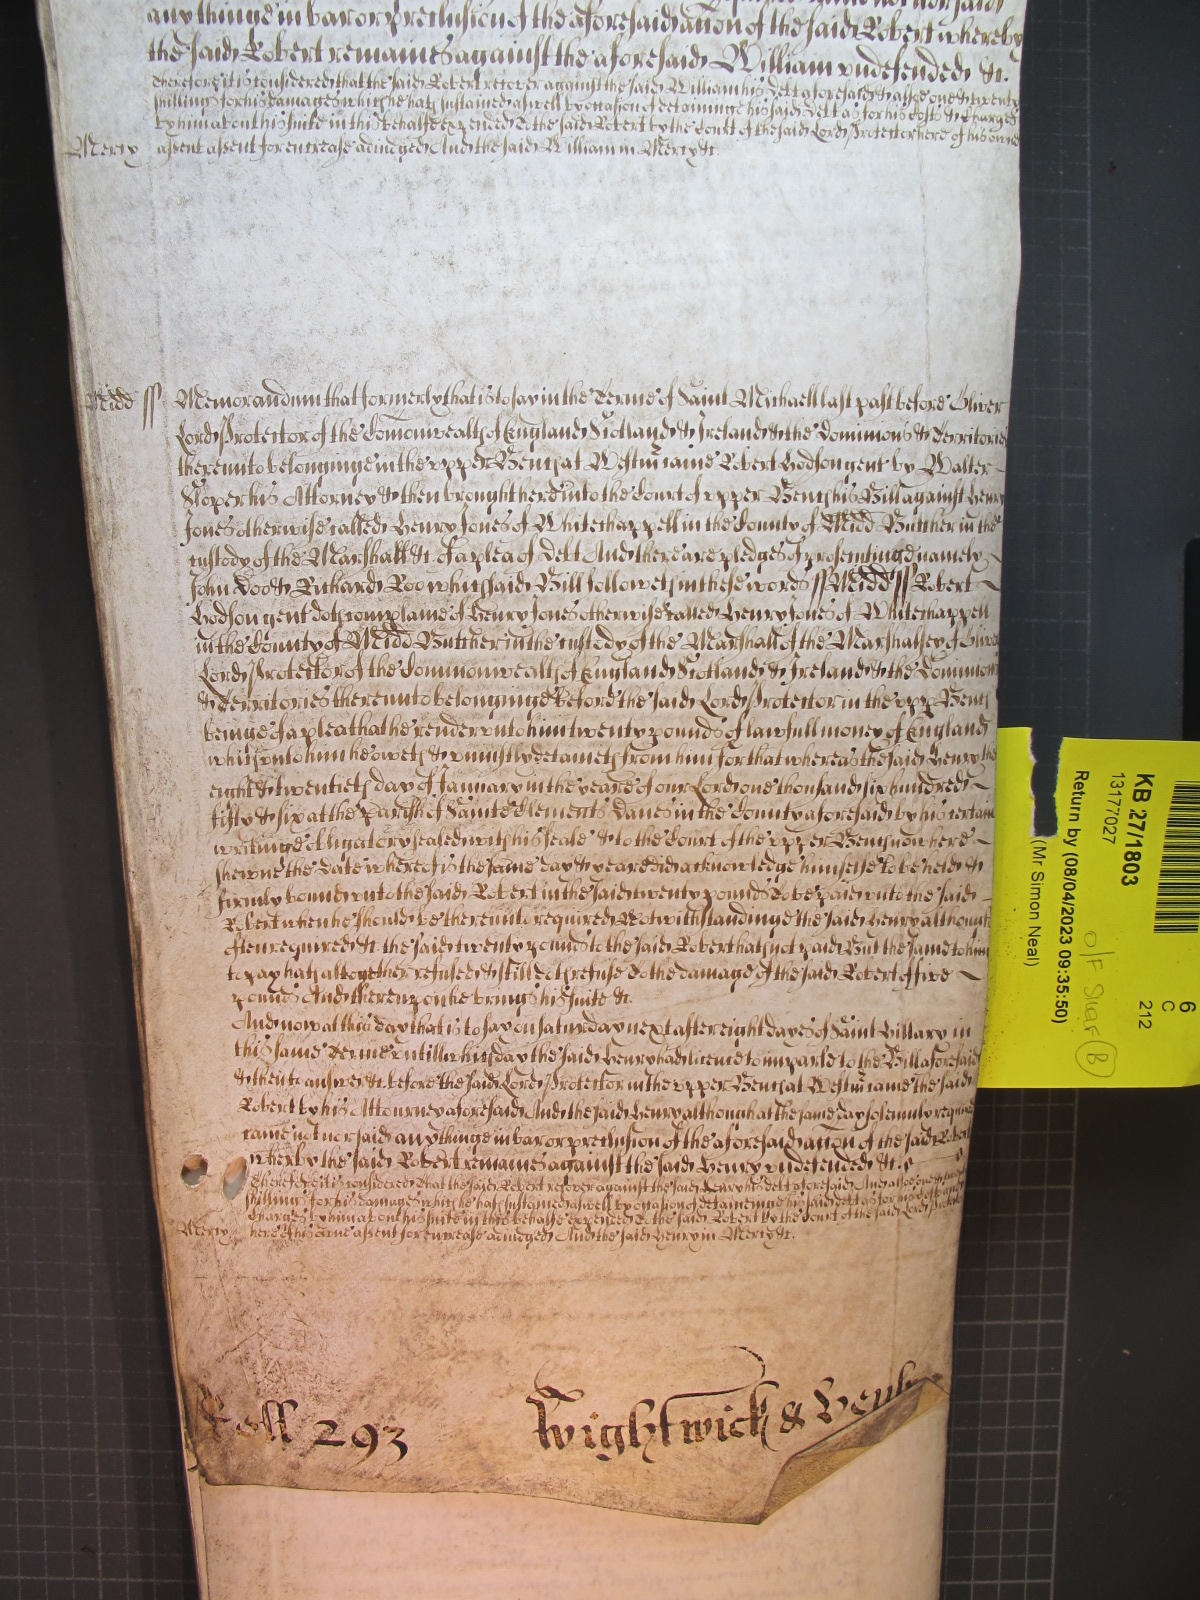 any thinge in bar or preclusion of the aforesaid accion of the said Robert whereby
the said Robert remaines against the aforesaid William undefended &c.
Therefore it is considered that the said Robert recover against the said William his Dett aforesaid & alsoe one & twenty
shillings for his damages which he hath sustained aswell by occasion of detaininge his said Dett as for his Costs & Charges
by him about his suite in this behalfe expended to the said Robert by the Court of the said Lord Protector here of his owne
Mercy assent assent for encrease adiudged And the said William in Mercy &c.
Midd ss Memorandum that formerly that is to say in the Terme of Saint Michaell last past before Oliver
Lord Protector of the Comonwealth of England Scotland & Ireland & the Dominions & Territories
thereunto belonginge in the upper Bench at Westm came Robert Godson gent by Walter
Sloper his Attorney & then brought here into the Court of upper Bench his Bill against Henry
Jones otherwise called Henry Jones of Whitechappell in the County of Midd Butcher in the
custody of the Marshall &c. of a plea of Debt And there are pledges of prosecutinge namely
John Doo & Richard Roo which said Bill followeth in these words ss Midd ss Robert
Godson gent doth complaine of Henry Jones otherwise called Henry Jones of Whitechappell
in the County of Midd Butcher in the custody of the Marshall of the Marshalsey of Oliver
Lord Protector of the Commonwealth of England Scotland & Ireland & the Dominions
& Territories thereunto belonginge before the said Lord Protector in the upper Bench
beinge of a plea that he render unto him twenty pounds of lawfull money of England
which unto him he oweth & uniustly detaineth from him for that whereas the said Henry the
eight & twentieth day of January in the yeare of our Lord one thousand six hundred
fifty & six at the Parish of Sainte Clements Danes in the County aforesaid by his certaine
writinge obligatory sealed with his seale & to the Court of the upper Bench now here
shewne the date whereof is the same day & yeare did acknowledge himselfe to be held &
firmly bound unto the said Robert in the said twenty pounds to be paid unto the said
Robert when he should be thereunto required Notwithstandinge the said Henry although
often required &c. the said twenty pounds to the said Robert hath not paid But the same to him
to pay hath altogether refused & still doth refuse to the damage of the said Robert of five
pounds And thereupon he brings his suite &c.
And now at this day that is to say on saturday next after eight dayes of Saint Hillary in
this same Terme untill which day the said Henry had licence to imparle to the Bill aforesaid
& then to answer &c before the said Lord Protector in the upper Bench at Westm came the said
Robert by his Attourney aforesaid And the said Henry although at the same day solemnly required
came not nor said any thinge in bar or preclusion of the aforesaid accion of the said Robert
wherby the said Robert remaines against the said Henry undefended &c.
Therefore it is considered that the said Robert recover against the said Henry his dett aforesaid And alsoe one & twenty
shillings for his damages which he hath sustained aswell by occasion of detaininge his said dett as for his Costs and
Charges by him about his suite in this behalfe expended to the said Robert by the Court of the said Lord Protector
Mercy here of his owne assent for encrease adiudged And the said Henry in Mercy &c.
Roll 293 Wightwick &
KB 27/1803
13177027
Return by (08/04/2023 09:35:50)
(Mr Simon Neal)
6
C
212
O/F Shelf B